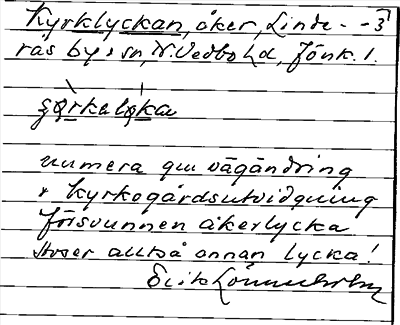 Kyrklyckan, åker, Linde- -3
rås by o sn, N. Vedbo hd, Jönk. l.
çø̀rkaløkan
numera gm vägändring
o kyrkogårdsutvidgning
försvunnen åkerlycka
Avser alltså annan lycka!
Erik Lönnerholm